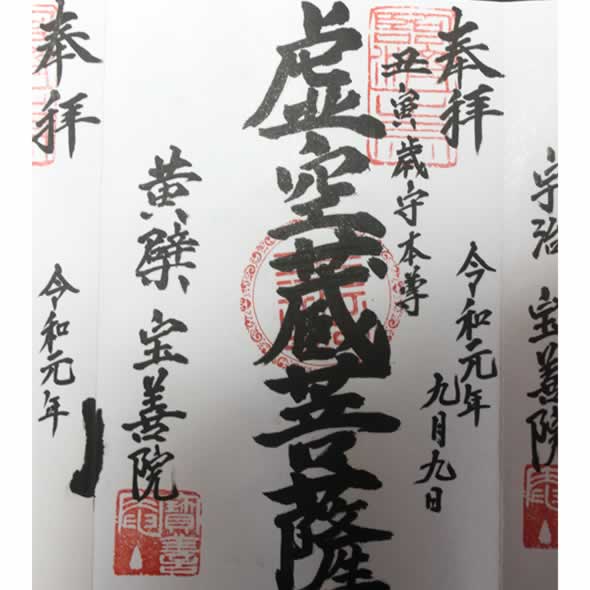 宇治 宝善院
奉拝
令和元年
九月九日
丑寅歳守本尊
虚空蔵菩薩
黄檗 宝善院
寳善院
奉拝
令和元年